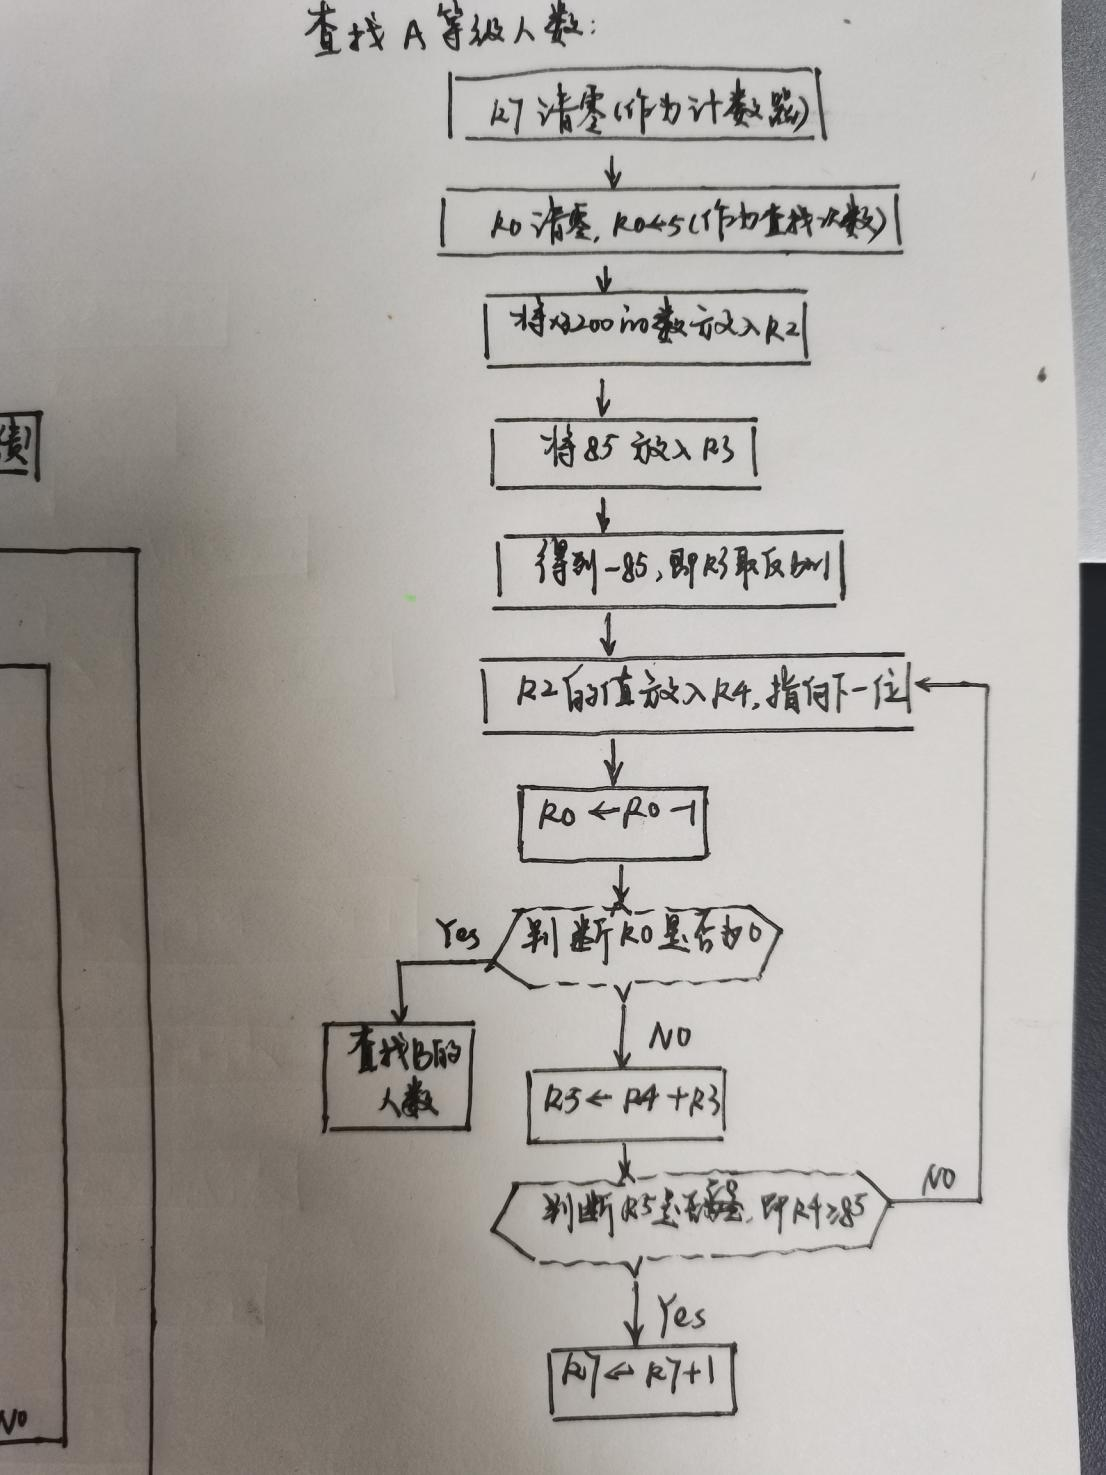 查找A等级人数:
R7清零(作为计数器)
R0清零,R0←5(作为查找次数)
将x3200的数放入R2
将85放入R3
得到-85,即R3取反加1
R2的值放入R4,指向下一位
R0←R0-1
判断R0是否为0
Yes
NO
查找B的
人数
R5←R4+R3
判断R5是否,即R4≥85
NO
Yes
R7←R7+1
绩)
NO